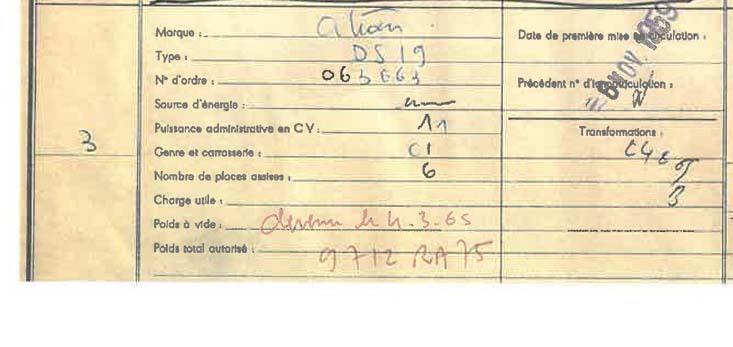 3
Marque : Citroën
Type : DS 19
N° d'ordre : 063663
Source d'énergie :
Puissance administrative en CV : 11
Genre et carrosserie : CI
Nombre de places assises : 6
Charge utile :
Poids à vide : devenu le 4.3.65
Poids total autorisé : 9712 RA 75
Date de première mise en circulation :
NOV. 1959
Précédent n° d'immatriculation :
Transformations :